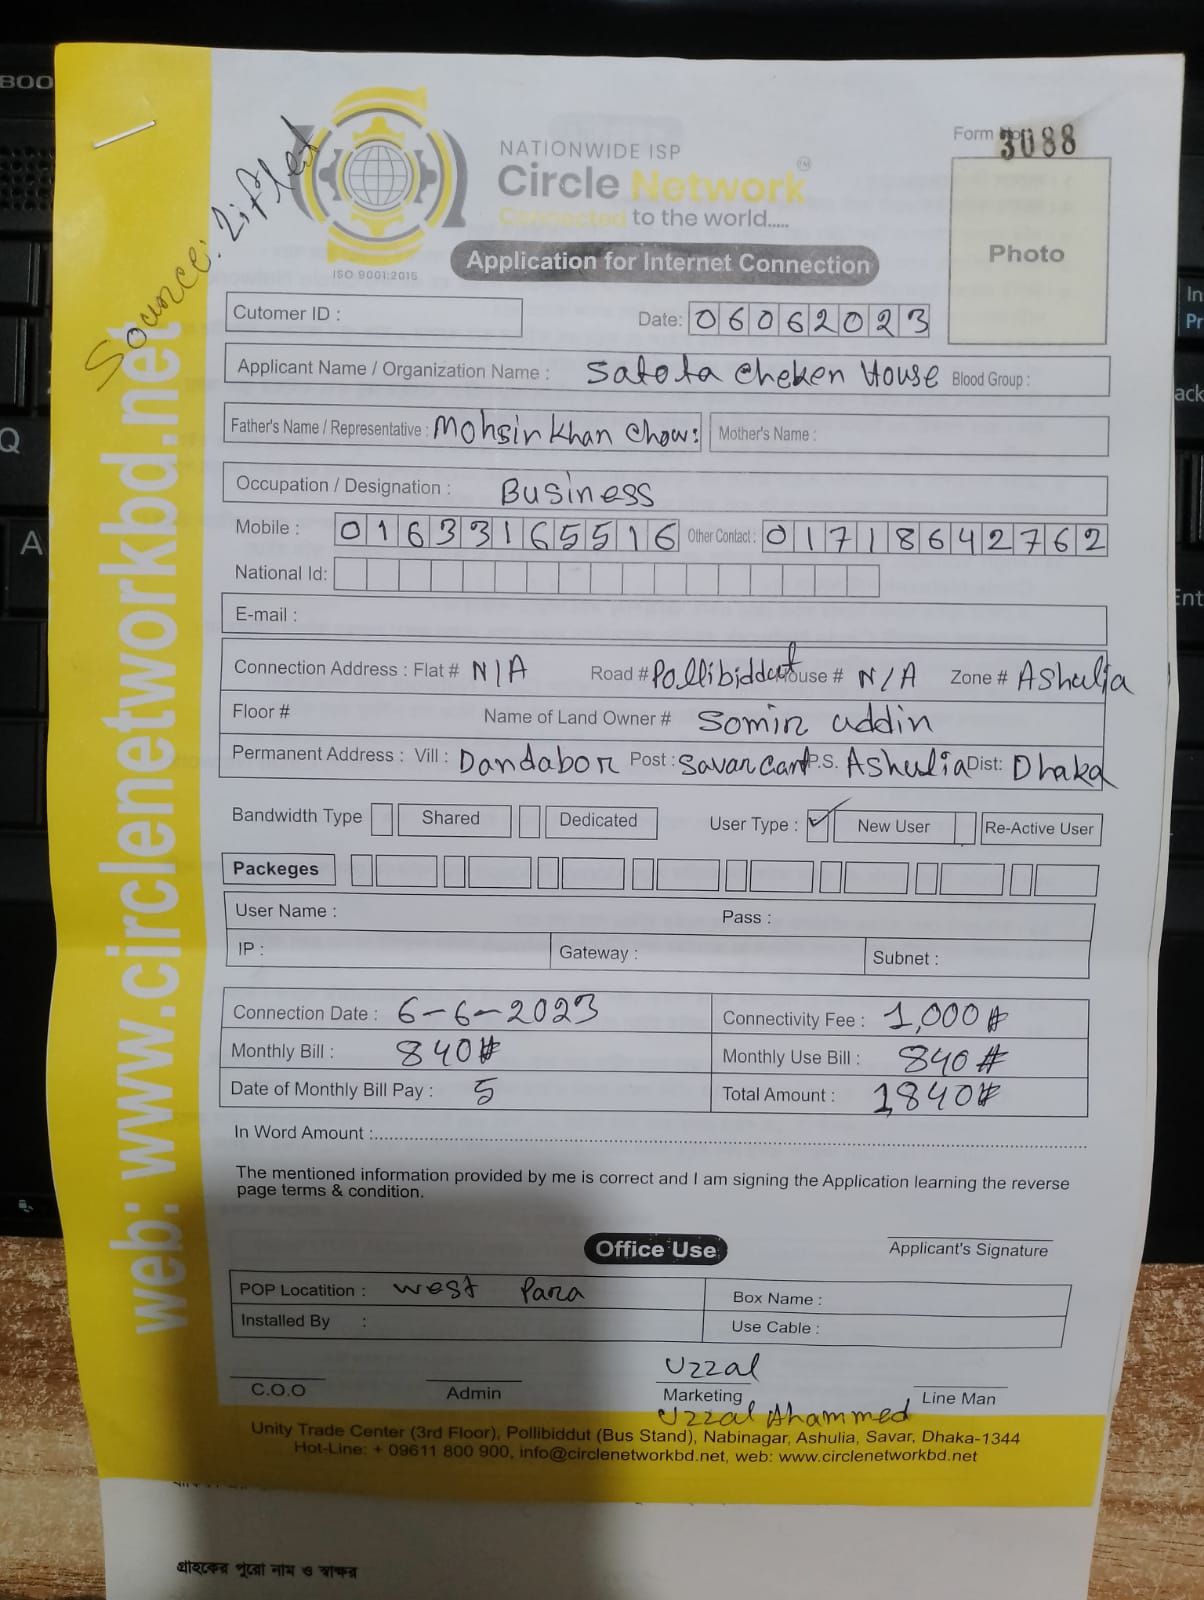 Source: Liflet
web: www.circlenetworkbd.net
NATIONWIDE ISP
Circle Network TM
Connected to the world.....
ISO 9001:2015
Form No 3088
Photo
Application for Internet Connection
Cutomer ID :
Date: 06062023
Applicant Name / Organization Name : Satota Cheken House Blood Group :
Father's Name / Representative : Mohsin Khan Chow: Mother's Name :
Occupation / Designation : Business
Mobile : 01633165516 Other Contact : 01718642762
National Id:
E-mail :
Connection Address : Flat # N/A Road # Pollibiddut House # N/A Zone # Ashulia
Floor # Name of Land Owner # Somir uddin
Permanent Address : Vill : Dandabor Post : Savar cant P.S. Ashulia Dist: Dhaka
Bandwidth Type Shared Dedicated User Type : ✓ New User Re-Active User
Packeges
User Name : Pass :
IP : Gateway : Subnet :
Connection Date : 6-6-2023 Connectivity Fee : 1,000#
Monthly Bill : 840# Monthly Use Bill : 840#
Date of Monthly Bill Pay : 5 Total Amount : 1,840#
In Word Amount :
The mentioned information provided by me is correct and I am signing the Application learning the reverse
page terms & condition.
Applicant's Signature
Office Use
POP Locatition : west Para Box Name :
Installed By : Use Cable :
Uzzal
C.O.O Admin Marketing Line Man
Uzzal Ahammed
Unity Trade Center (3rd Floor), Pollibiddut (Bus Stand), Nabinagar, Ashulia, Savar, Dhaka-1344
Hot-Line: + 09611 800 900, info@circlenetworkbd.net, web: www.circlenetworkbd.net
গ্রাহকের পুরো নাম ও স্বাক্ষর